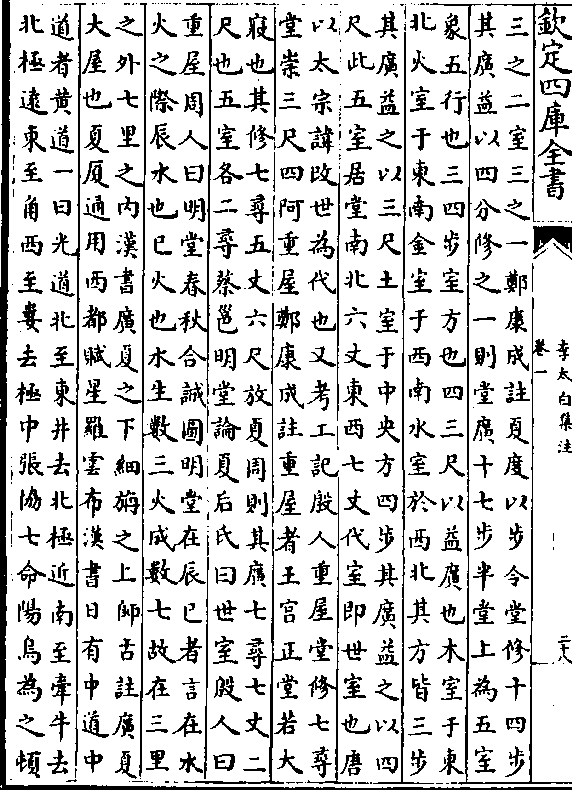 欽定四庫全書
李太白集注
卷一
二十八
三之二室三之一鄭康成註夏度以步令堂修十四步
其廣益以四分修之一則堂廣十七步半堂上為五室
象五行也三四步室方也四三尺以益廣也木室于東
北火室于東南金室于西南水室於西北其方皆三步
其廣益之以三尺土室于中央方四步其廣益之以四
尺此五室居堂南北六丈東西七丈代室即世室也唐
以太宗諱改世為代也又考工記殷人重屋堂修七尋
堂崇三尺四阿重屋鄭康成註重屋者王宮正堂若大
寢也其修七尋五丈六尺放夏周則其廣七尋七丈二
尺也五室各二尋蔡邕明堂論夏后氏曰世室殷人曰
重屋周人曰明堂春秋合誠圖明堂在辰巳者言在水
火之際辰水也巳火也水生數三火成數七故在三里
之外七里之內漢書廣夏之下細旃之上師古註廣夏
大屋也夏厦通用西都賦星羅雲布漢書日有中道中
道者黃道一曰光道北至東井去北極近南至牽牛去
北極遠東至角西至婁去極中張協七命陽烏為之頓